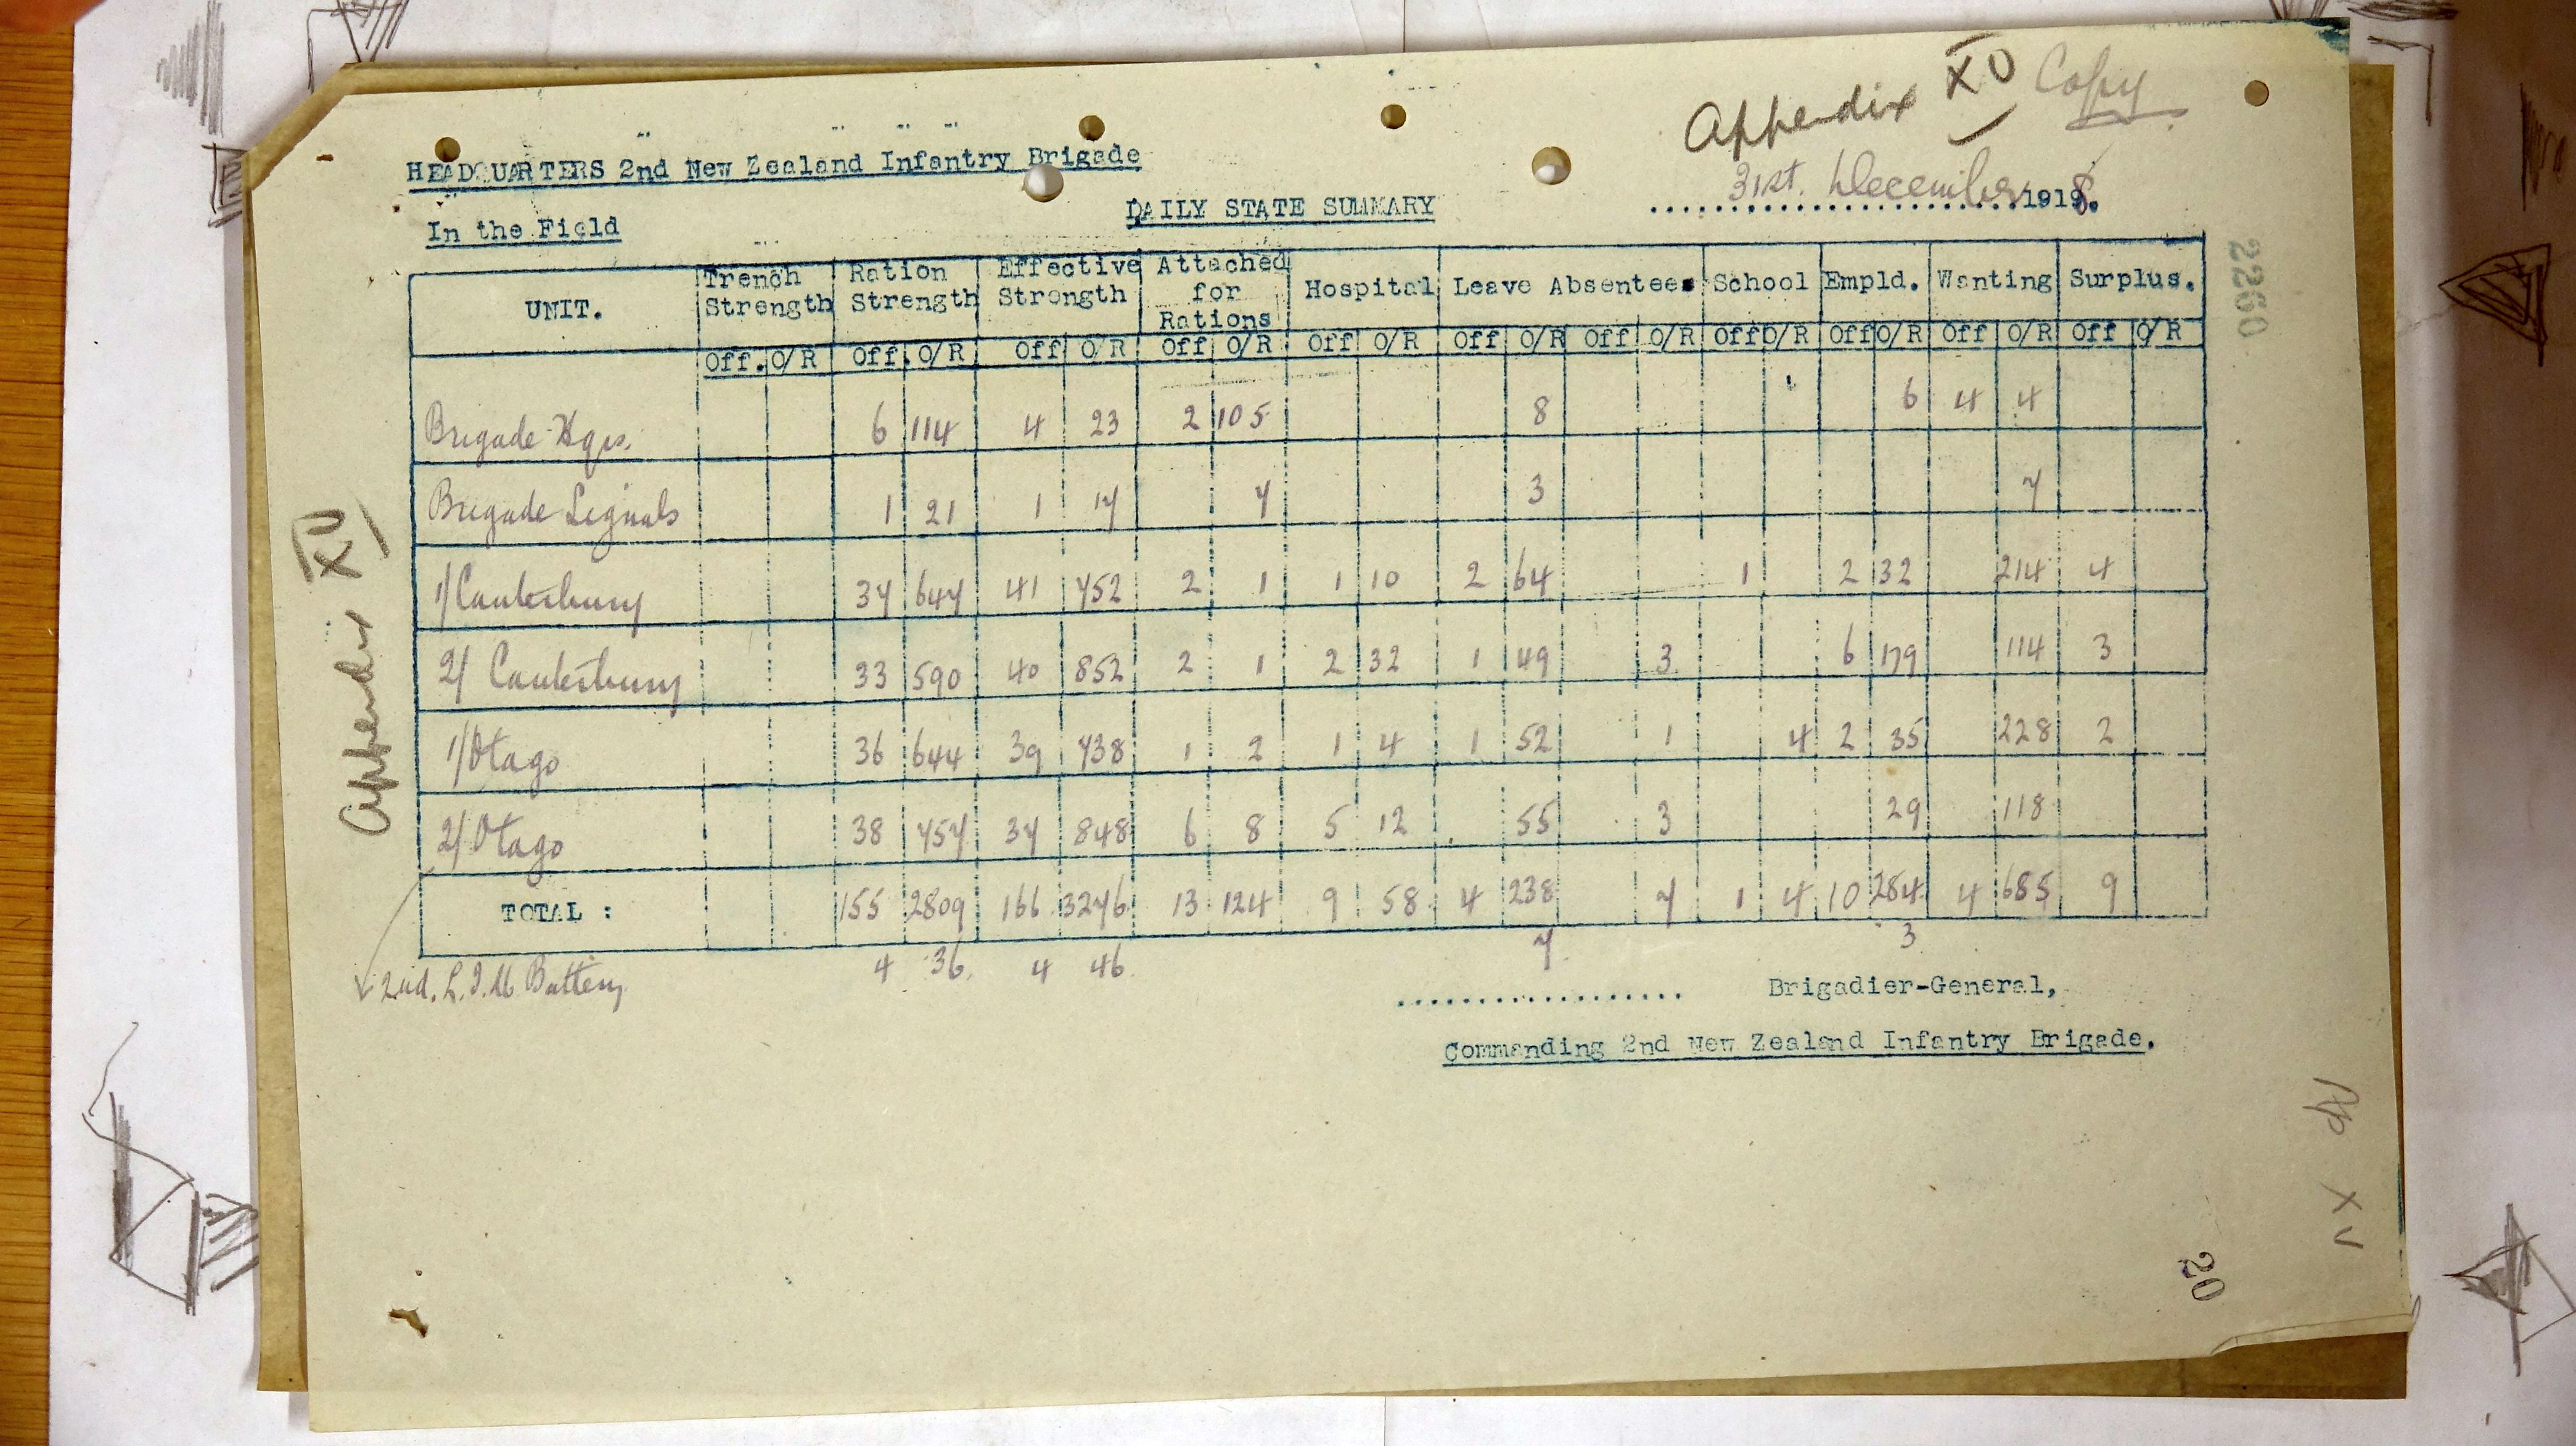 Appendix XV Copy
HEADQUARTERS 2nd New Zealand Infantry Brigade
31st. December 1918.
DAILY STATE SUMMARY
In the Field
UNIT. Trench Strength Ration Strength Effective Strength Attached for Rations Hospital Leave Absentees School Empld. Wanting Surplus.
Off. O/R Off. O/R Off O/R Off O/R Off O/R Off O/R Off O/R Off O/R Off O/R Off O/R Off O/R
Brigade Hqrs. 6 114 4 23 2 105 8 6 4 4
Brigade Signals 1 21 1 17 7 3 7
1/Canterbury 37 647 41 752 2 1 1 10 2 64 1 2 32 214 4
2/ Canterbury 33 590 40 852 2 1 2 32 1 49 3 6 179 114 3
1/Otago 36 644 39 738 1 2 1 4 1 52 1 4 2 35 228 2
2/ Otago 38 757 37 848 6 8 5 12 55 3 29 118
TOTAL : 155 2809 166 3276 13 124 9 58 4 238 7 1 4 10 284 4 685 9
2nd. L.T.M Battery 4 36 4 46 7 3
Brigadier-General,
Commanding 2nd New Zealand Infantry Brigade.
Appendix XV
0220
Ap XV
20